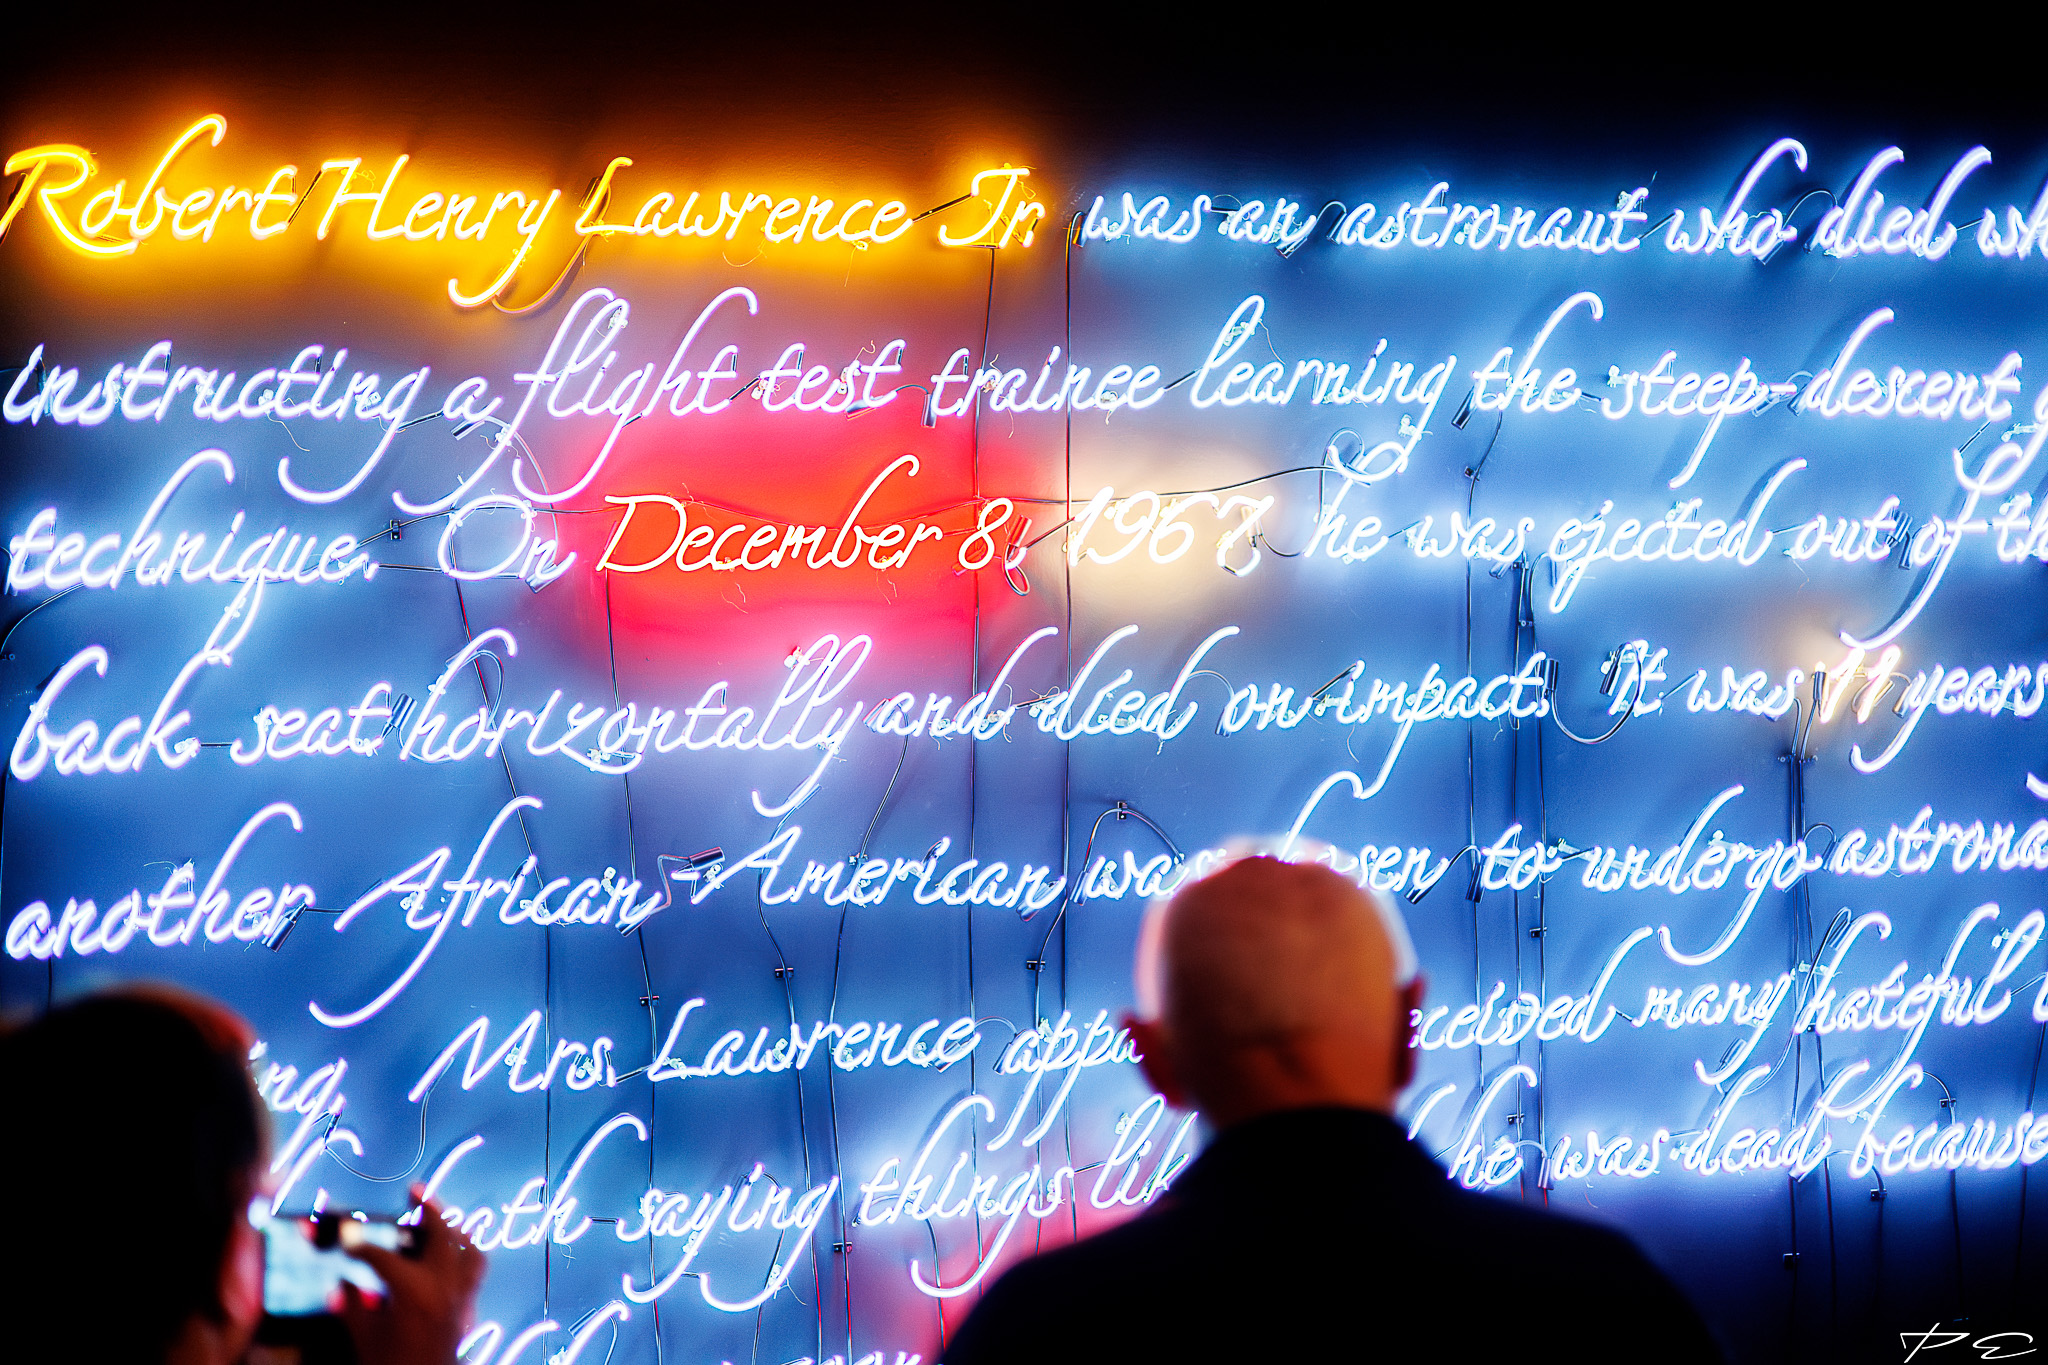 Robert Henry Lawrence Jr. was an astronaut who died
instructing a flight test trainee learning the steep-descent
technique. On December 8, 1967 he was ejected out of
back seat horizontally and died on impact. It was 11 years
another African-American was to undergo
Mrs. Lawrence many hateful
death saying things he was dead because
P E